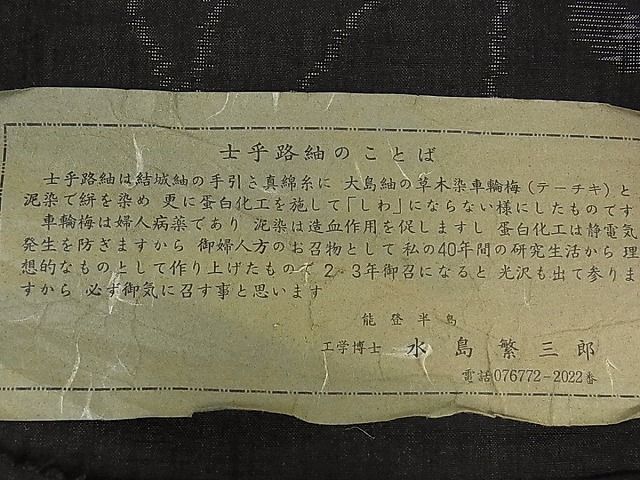 士乎路紬のことば
士乎路紬は結城紬の手引き真綿糸に 大島紬の草木染車輪梅(テーチキ)と
泥染で絣を染め 更に蛋白化工を施して「しわ」にならない様にしたものです
車輪梅は婦人病薬であり 泥染は造血作用を促しますし 蛋白化工は静電気
発生を防ぎますから 御婦人方のお召物として 私の40年間の研究生活から 理
想的なものとして作り上げたもので 2・3年御召になると 光沢も出て参りま
すから 必ず御気に召す事と思います
能登半島
工学博士 水島繁三郎
電話076772-2022番